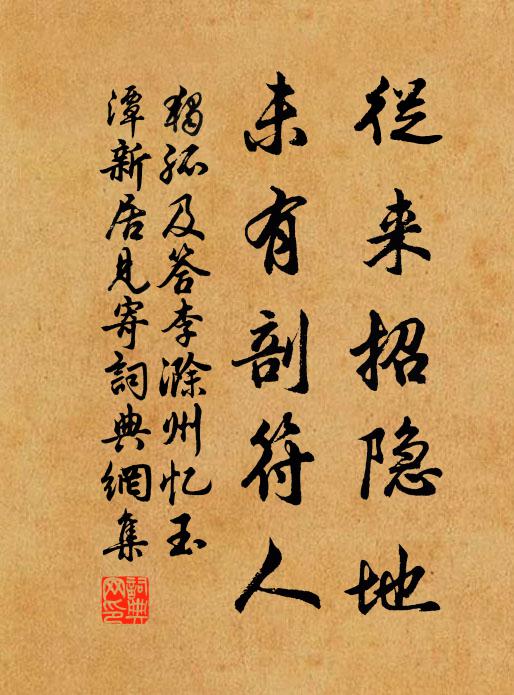 從来招隐地
未有剖符人
独孤及答李滁州忆玉
潭新居見寄詞典網集
詞典网印